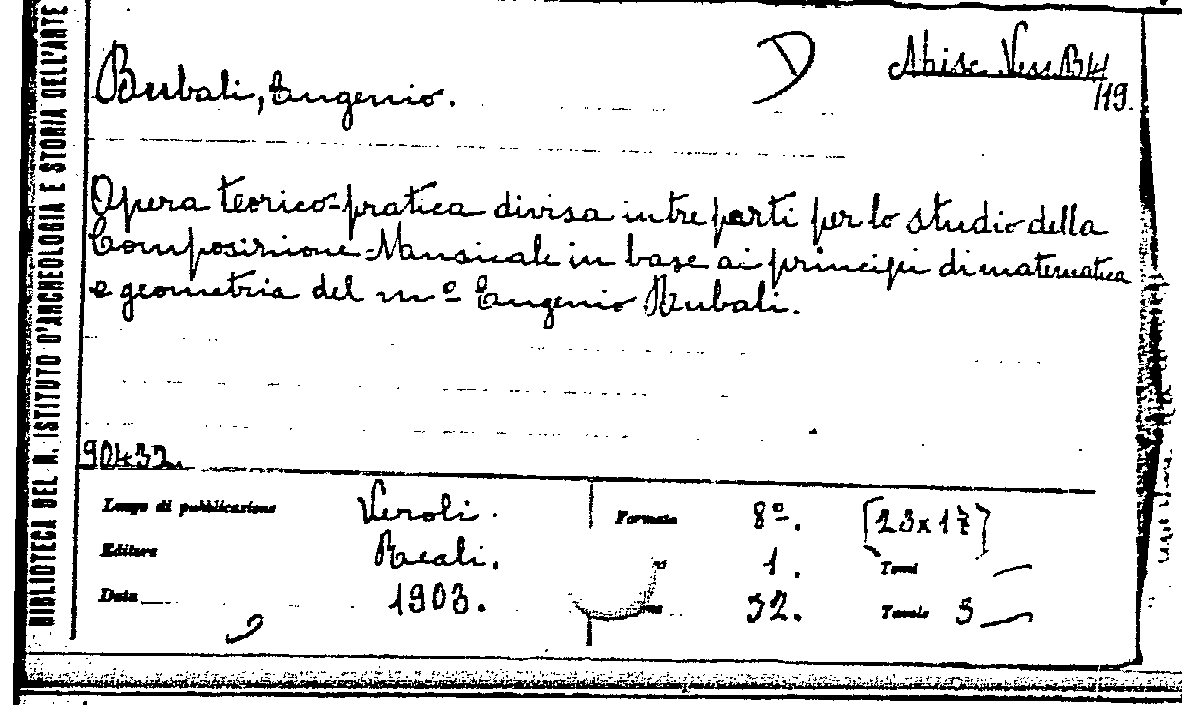 BIBLIOTECA DEL R. ISTITUTO D'ARCHEOLOGIA E STORIA DELL'ARTE
D
Misc. Vess. B 14/
119.
Bubali, Eugenio.
Opera teorico-pratica divisa in tre parti per lo studio della
Composizione-Musicale in base ai principi di matematica
e geometria del mº Eugenio Bubali.
90432.
Luogo di pubblicazione Veroli. Formato 8º. [23x17]
Editore Reali. 1. Tomi —
Data 1903. 32. Tavole 3